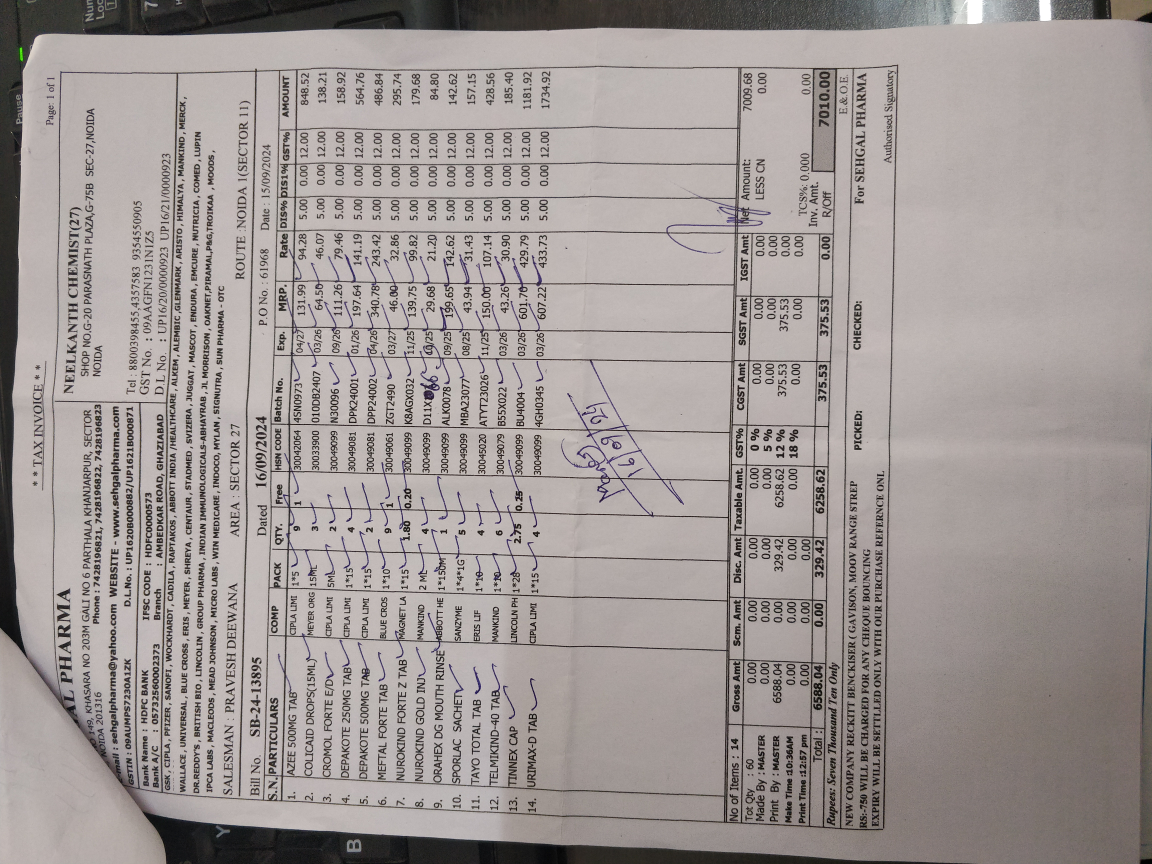 Page: 1 of 1
* * TAX INVOICE * *
AL PHARMA
149, KHASARA NO 203M GALI NO 6 PARTHALA KHANJARPUR, SECTOR
NOIDA 201316 Phone : 7428196821, 7428196822, 7428196823
mail : sehgalpharma@yahoo.com WEBSITE - www.sehgalpharma.com
GSTIN : 09AUMPS7230A1ZK D.L.No. : UP1620B000882/UP1621B000871
Bank Name : HDFC BANK IFSC CODE : HDFC0000573
Bank A/C : 05732560002373 Branch : AMBEDKAR ROAD, GHAZIABAD
NEELKANTH CHEMIST(27)
SHOP NO.G-20 PARASNATH PLAZA,G-75B SEC-27,NOIDA
NOIDA
Tel : 8800398455,4357583 9354550905
GST No. : 09AAGFN1231N1Z5
D.L No. : UP16/20/0000923 UP16/21/0000923
GSK , CIPLA , PFIZER , SANOFI , WOCKHARDT , CADILA , RAPTAKOS , ABBOTT INDIA /HEALTHCARE , ALKEM , ALEMBIC ,GLENMARK , ARISTO , HIMALYA , MANKIND , MERCK ,
WALLACE , UNIVERSAL , BLUE CROSS , ERIS , MEYER , SHREYA , CENTAUR , STADMED , SVIZERA , JUGGAT , MASCOT , ENDURA , EMCURE , NUTRICIA , COMED , LUPIN
DR.REDDY'S , BRITISH BIO , LINCOLIN , GROUP PHARMA , INDIAN IMMUNOLOGICALS-ABHAYRAB , JL MORRISON , OAKNET,PIRAMAL,P&G,TROIKAA , MOODS ,
IPCA LABS , MACLEODS , MEAD JOHNSON , MICRO LABS , WIN MEDICARE , INDOCO , MYLAN , SIGNUTRA , SUN PHARMA - OTC
SALESMAN : PRAVESH DEEWANA AREA : SECTOR 27 ROUTE :NOIDA 1(SECTOR 11)
Bill No. SB-24-13895 Dated 16/09/2024 P.O No. : 61968 Date : 15/09/2024
S.N. PARTICULARS COMP PACK QTY. Free HSN CODE Batch No. Exp. MRP. Rate DIS% DIS1% GST% AMOUNT
1. AZEE 500MG TAB CIPLA LIMI 1*5 9 1 30042064 4SN0973 04/27 131.99 94.28 5.00 0.00 12.00 848.52
2. COLICAID DROPS(15ML) MEYER ORG 15ML 3 30033900 010DB2407 03/26 64.50 46.07 5.00 0.00 12.00 138.21
3. CROMOL FORTE E/D CIPLA LIMI 5ML 2 30049099 N30096 09/26 111.26 79.46 5.00 0.00 12.00 158.92
4. DEPAKOTE 250MG TAB CIPLA LIMI 1*15 4 30049081 DPK24001 01/26 197.64 141.19 5.00 0.00 12.00 564.76
5. DEPAKOTE 500MG TAB CIPLA LIMI 1*15 2 30049081 DPP24002 04/26 340.78 243.42 5.00 0.00 12.00 486.84
6. MEFTAL FORTE TAB BLUE CROS 1*10 9 1 30049061 ZGT2490 03/27 46.00 32.86 5.00 0.00 12.00 295.74
7. NUROKIND FORTE Z TAB MAGNET LA 1*15 1.80 0.20 30049099 K8AGX032 11/25 139.75 99.82 5.00 0.00 12.00 179.68
8. NUROKIND GOLD INJ MANKIND 2 ML 4 30049099 29.68 21.20 5.00 0.00 12.00 84.80
9. ORAHEX DG MOUTH RINSE ABBOTT HE 1*150M 1 30049099 ALK0078 09/25 199.65 142.62 5.00 0.00 12.00 142.62
10. SPORLAC SACHET SANZYME 1*4*1G 5 30049099 MBA23077 08/25 43.94 31.43 5.00 0.00 12.00 157.15
11. TAYO TOTAL TAB ERIS LIF 1*10 4 30045020 ATYT23026 11/25 150.00 107.14 5.00 0.00 12.00 428.56
12. TELMIKIND-40 TAB MANKIND 1*10 6 30049079 B55X022 03/26 43.26 30.90 5.00 0.00 12.00 185.40
13. TINNEX CAP LINCOLN PH 1*20 2.75 0.25 30049099 BU4004 03/26 601.70 429.79 5.00 0.00 12.00 1181.92
14. URIMAX-D TAB CIPLA LIMI 1*15 4 30049099 4GH0345 03/26 607.22 433.73 5.00 0.00 12.00 1734.92
16/09/24
No of Items : 14 Gross Amt Scm. Amt Disc. Amt Taxable Amt. GST% CGST Amt SGST Amt IGST Amt Net Amount: 7009.68
Tot Qty : 60 0.00 0.00 0.00 0.00 0 % 0.00 0.00 0.00 LESS CN 0.00
Made By : MASTER 0.00 0.00 0.00 0.00 5 % 0.00 0.00 0.00
Print By : MASTER 6588.04 0.00 329.42 6258.62 12 % 375.53 375.53 0.00
Make Time :10:36AM 0.00 0.00 0.00 0.00 18 % 0.00 0.00 0.00
Print Time :12:57 pm TCS%: 0.000 0.00
Total : 6588.04 0.00 329.42 6258.62 375.53 375.53 0.00 Inv. Amt. R/Off 7010.00
Rupees: Seven Thousand Ten Only E.& O.E.
NEW COMPANY RECKITT BENCKISER ( GAVISON, MOOV RANGE STREP
RS:-750 WILL BE CHARGED FOR ANY CHEQUE BOUNCING
EXPIRY WILL BE SETTLED ONLY WITH OUR PURCHASE REFERNCE ONL
PICKED: CHECKED: For SEHGAL PHARMA
Authorised Signatory
Pause
Num
Loc
Y
B